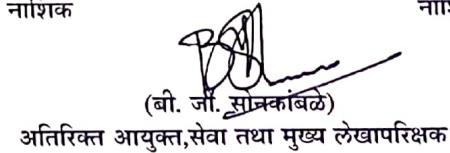 नाशिक
(बी. जी. सोनकांबळे)
अतिरिक्त आयुक्त,सेवा तथा मुख्य लेखापरिक्षक